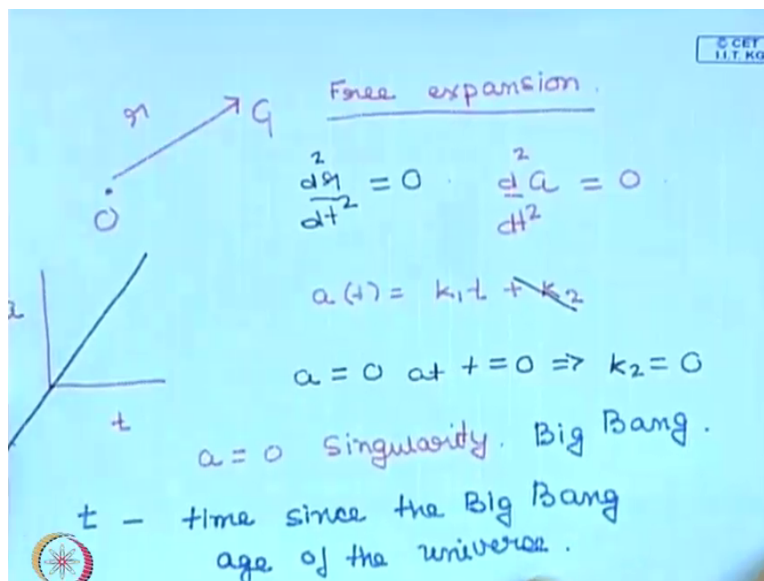 © CET
I.I.T. KGP
Free expansion.
r G
O
d²r/dt² = 0 . d²a/dt² = 0
a(t) = k₁t + k₂
a = 0 at t = 0 => k₂ = 0
a
t
a = 0 Singularity. Big Bang.
t - time since the Big Bang
age of the universe.